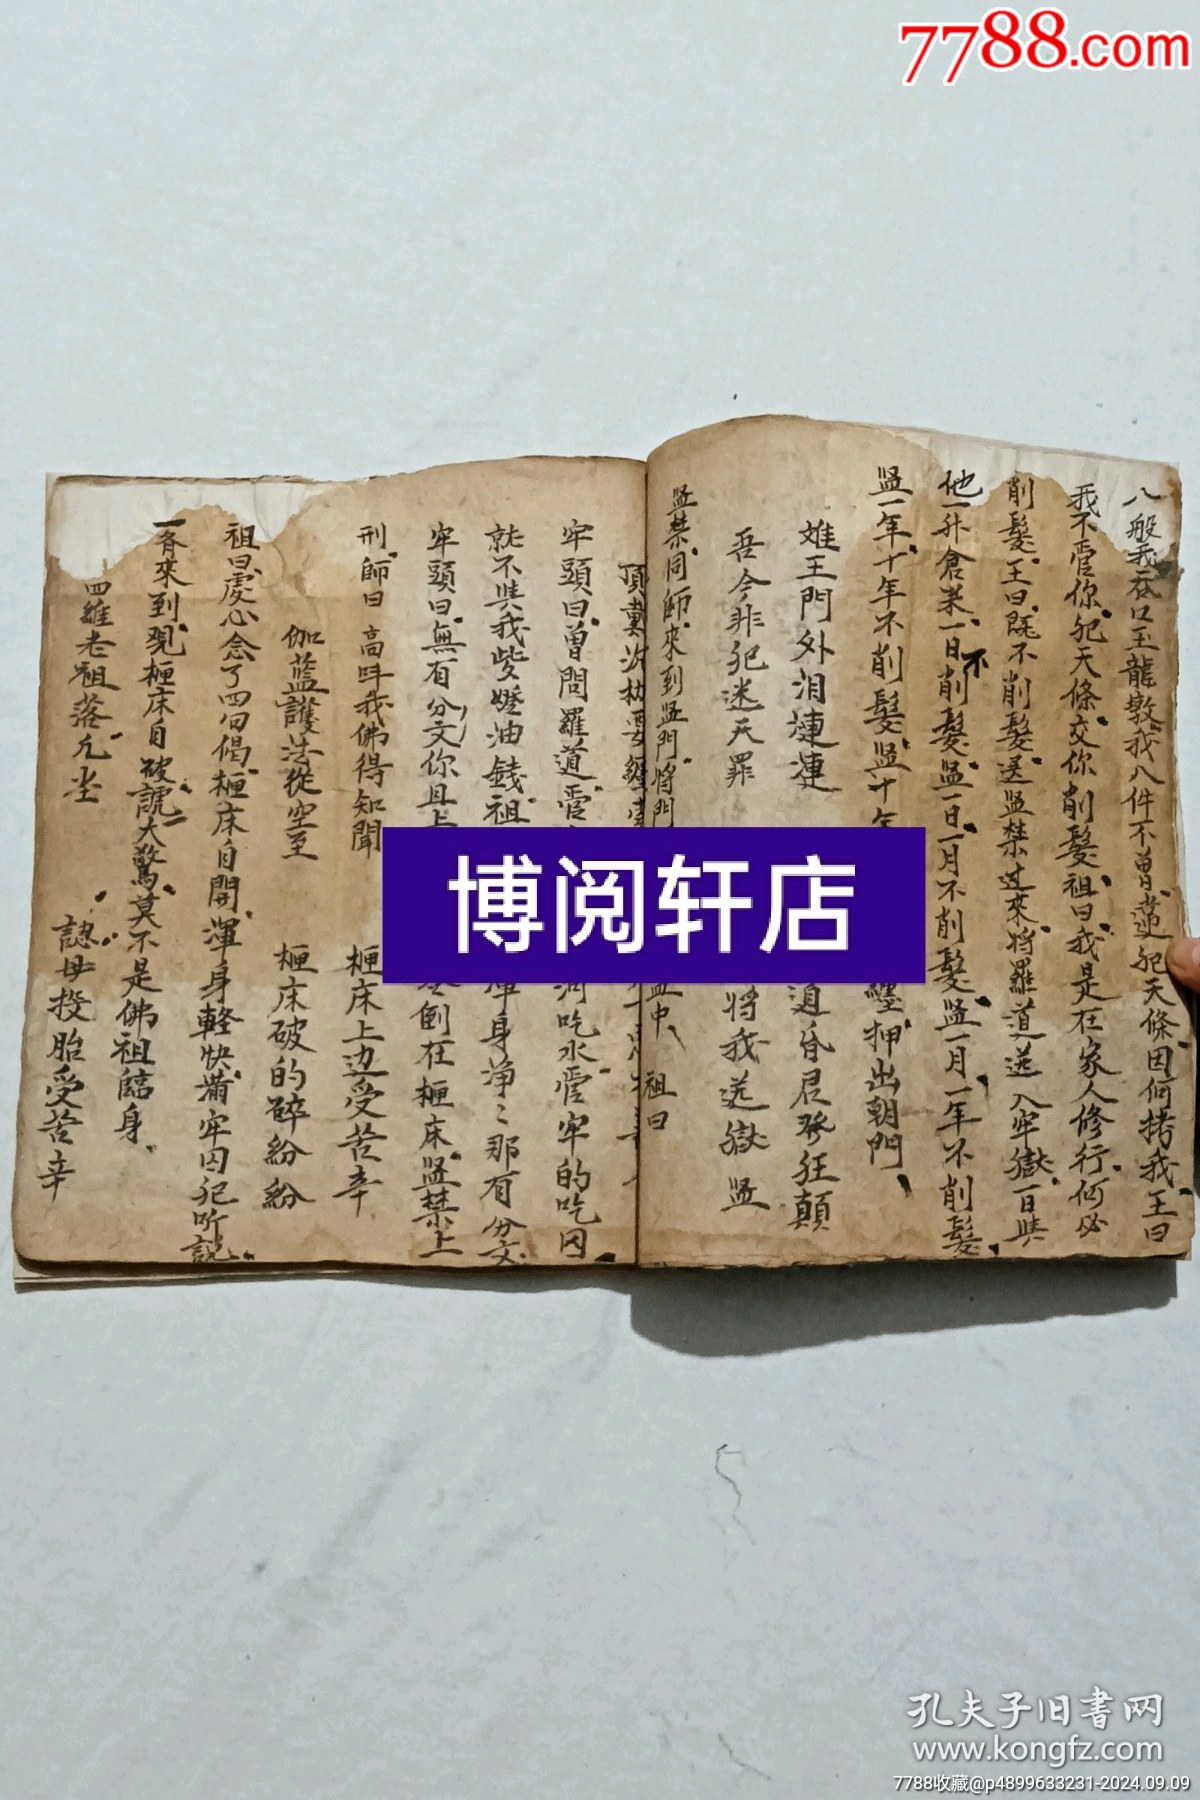 7788.com
八般我在口玉龍敦我八件不曾違犯天條因何拷我王曰
我不管你犯天條交你削髮祖曰我是在家人修行何必
削髮王曰既不削髮送监禁过來将羅道送入牢獄一日與
他一升倉米一日不削髮监一日一月不削髮监一月一年不削髮
监一年十年不削髮监十年 押出朝門
雄王門外泪連連 道君發狂顛
吾今非犯迷天罪 将我送獄监
监禁同師來到监門将門 监中 祖曰
頂
牢頭曰曾問羅道 吃水管牢的吃囚
就不與我些燈油錢祖 渾身净净那有分文
牢頭曰無有分文你且上 倒在柙床监禁上
刑師曰 高呌我佛得知聞 柙床上边受苦辛
伽藍護法從空至 柙床破的碎紛紛
祖曰虔心念了四句偈柙床自開渾身軽快满牢囚犯听説
一斉來到現柙床自破諕大驚莫不是佛祖臨身
四維老祖落凡尘 認母投胎受苦辛
博阅轩店
孔夫子旧书网
www.kongfz.com
7788收藏@p4899633231-2024.09.09